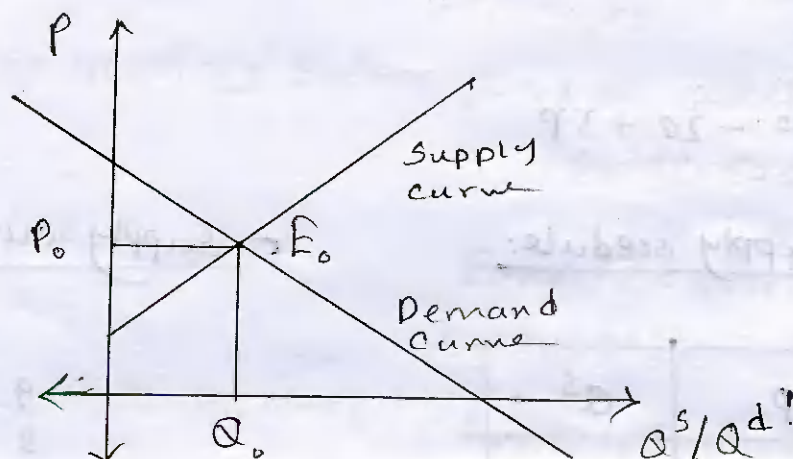 P
Supply
curve
P₀
E₀
Demand
Curve
Q₀
Qˢ/Qᵈ